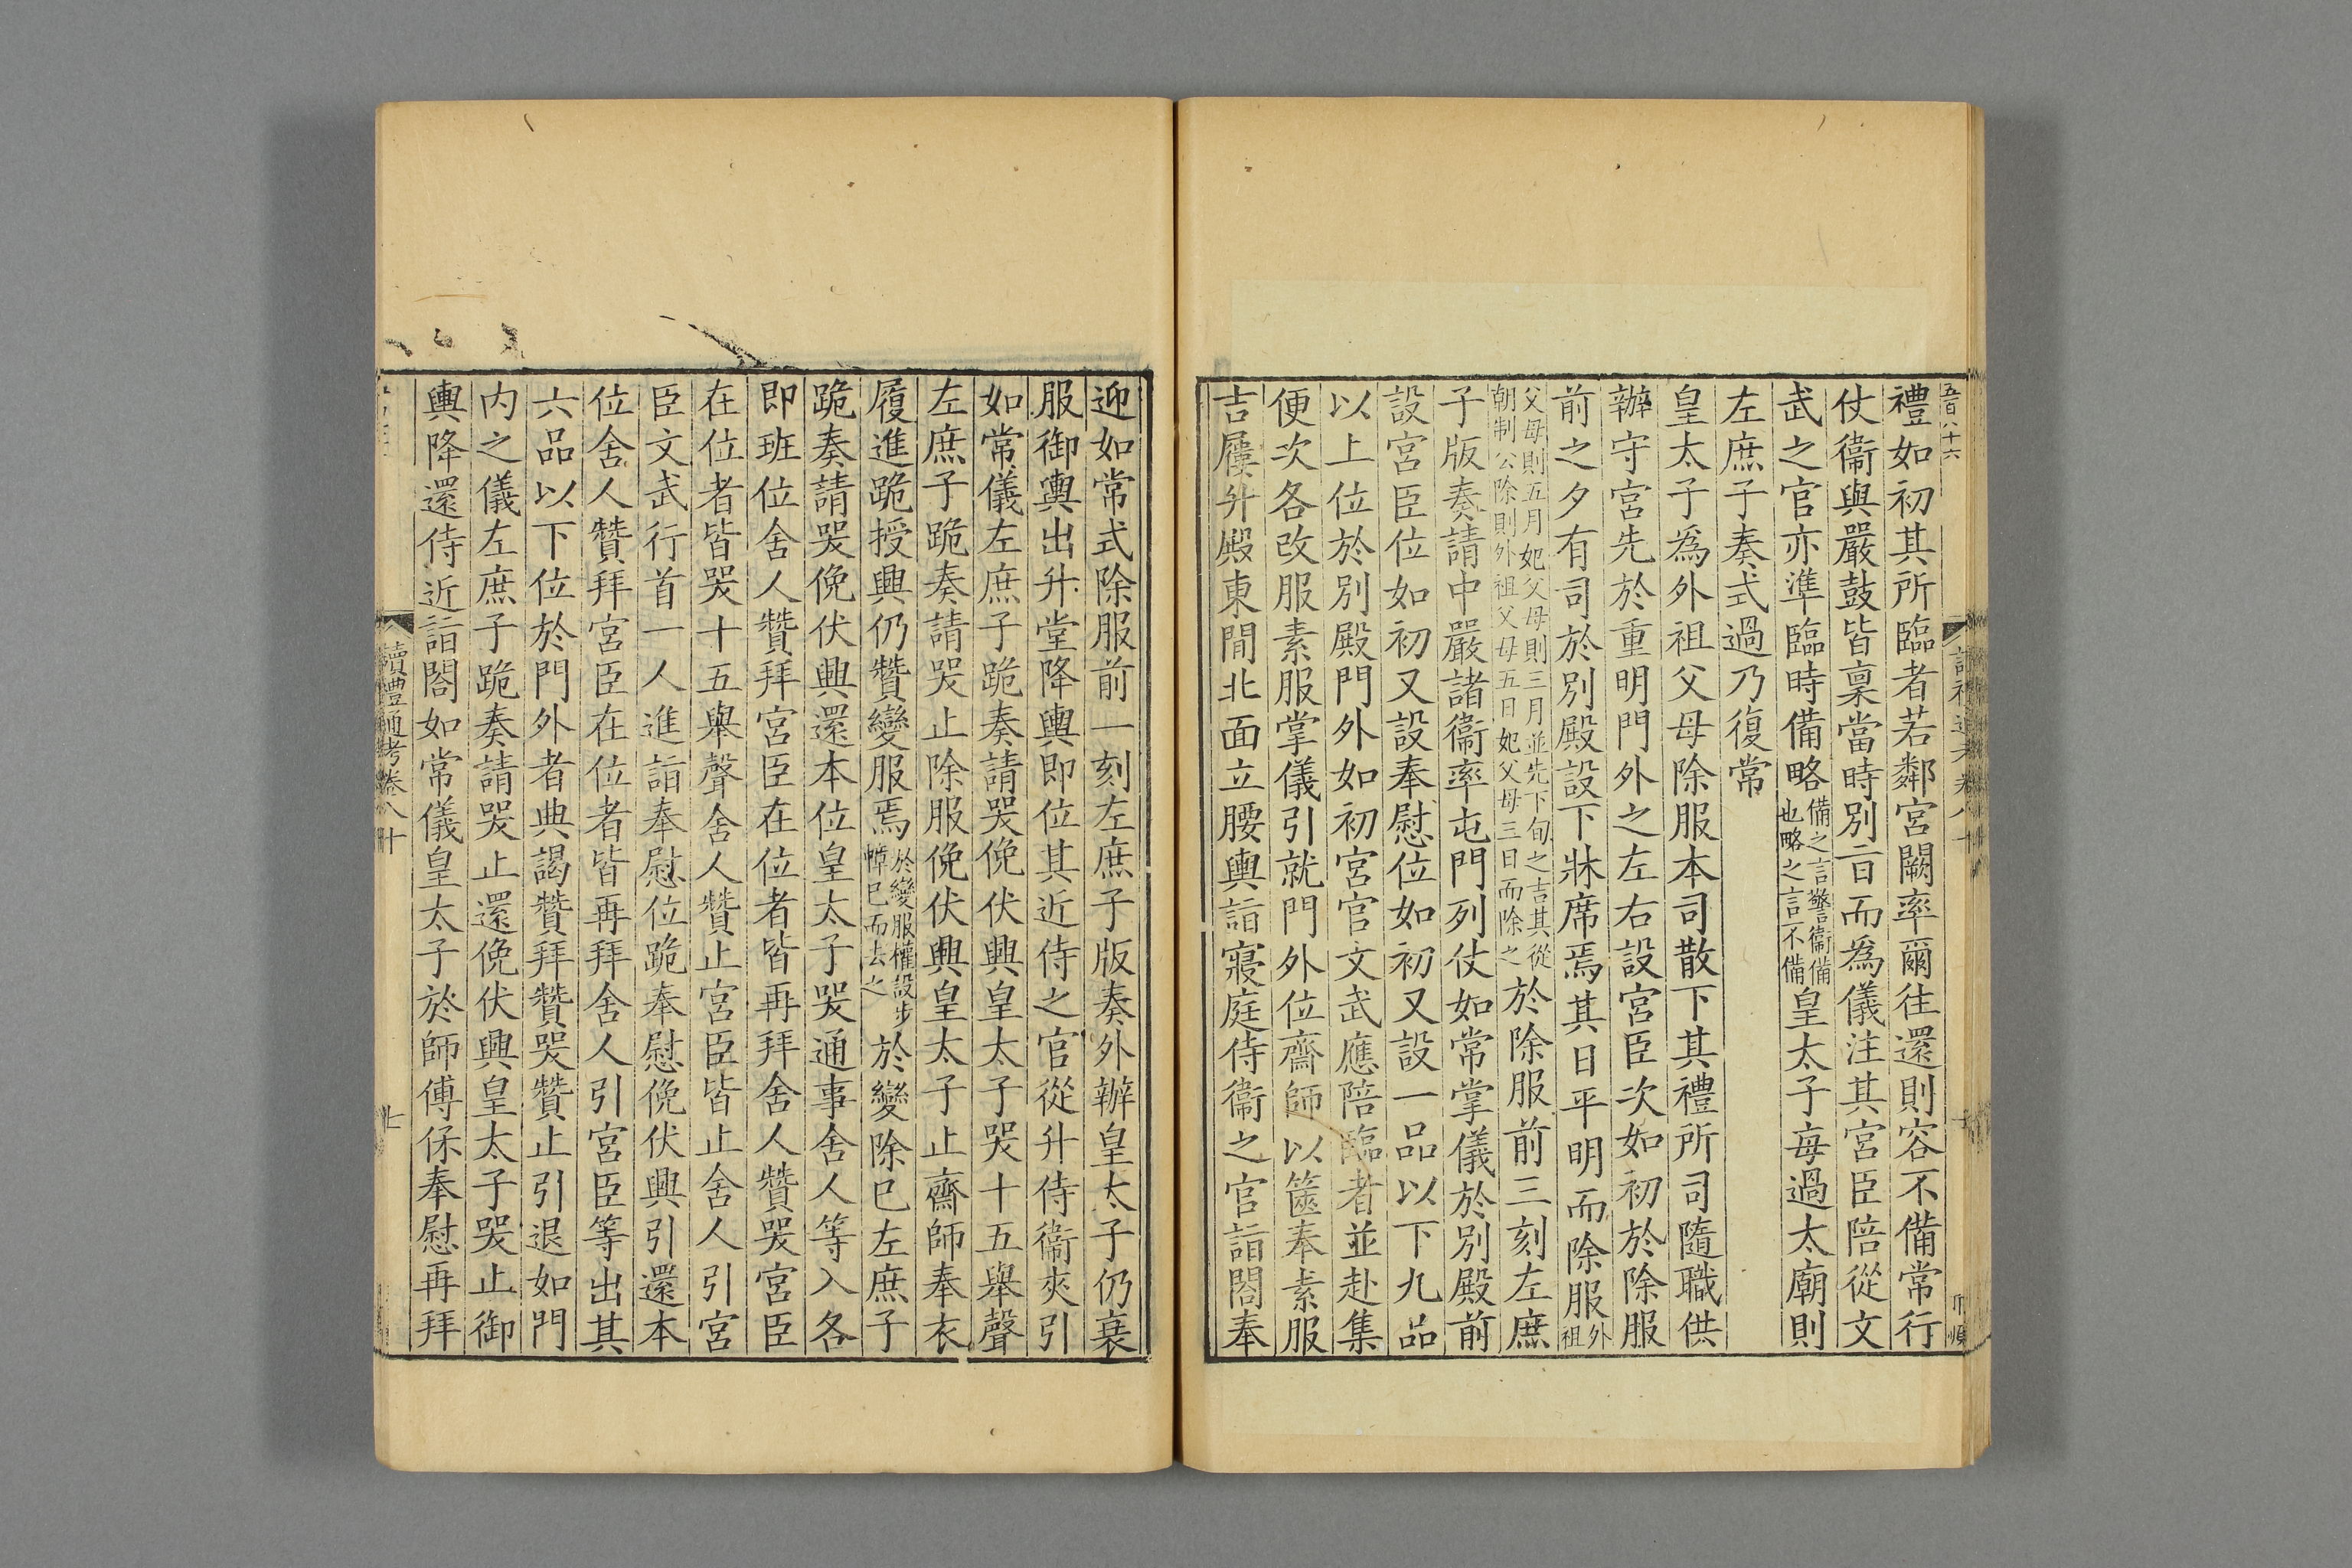 五百八十六
禮如初其所臨者若鄰宮闕率爾往還則容不備常行
仗衞與嚴鼓皆稟當時別旨而爲儀注其宮臣陪從文
武之官亦準臨時備略備之言警衞備也略之言不備皇太子每過太廟則
左庶子奏式過乃復常
皇太子爲外祖父母除服本司散下其禮所司隨職供
辦守宮先於重明門外之左右設宮臣次如初於除服
前之夕有司於別殿設下牀席焉其日平明而除服外祖
父母則五月妃父母則三月並先下旬之吉其從朝制公除則外祖父母五日妃父母三日而除之於除服前三刻左庶
子版奏請中嚴諸衞率屯門列仗如常掌儀於別殿前
設宮臣位如初又設奉慰位如初又設一品以下九品
以上位於別殿門外如初宮官文武應陪臨者並赴集
便次各改服素服掌儀引就門外位齋師以篋奉素服
吉屨升殿東間北面立腰輿詣寢庭侍衞之官詣閤奉
迎如常式除服前一刻左庶子版奏外辦皇太子仍衰
服御輿出升堂降輿即位其近侍之官從升侍衞夾引
如常儀左庶子跪奏請哭俛伏興皇太子哭十五舉聲
左庶子跪奏請哭止除服俛伏興皇太子止齋師奉衣
履進跪授興仍贊變服焉於變服權設步幛已而去之於變除已左庶子
跪奏請哭俛伏興還本位皇太子哭通事舍人等入各
即班位舍人贊拜宮臣在位者皆再拜舍人贊哭宮臣
在位者皆哭十五舉聲舍人贊止宮臣皆止舍人引宮
臣文武行首一人進詣奉慰位跪奉慰俛伏興引還本
位舍人贊拜宮臣在位者皆再拜舍人引宮臣等出其
六品以下位於門外者典謁贊拜贊哭贊止引退如門
內之儀左庶子跪奏請哭止還俛伏興皇太子哭止御
輿降還侍近詣閤如常儀皇太子於師傅保奉慰再拜
讀禮通考卷八十